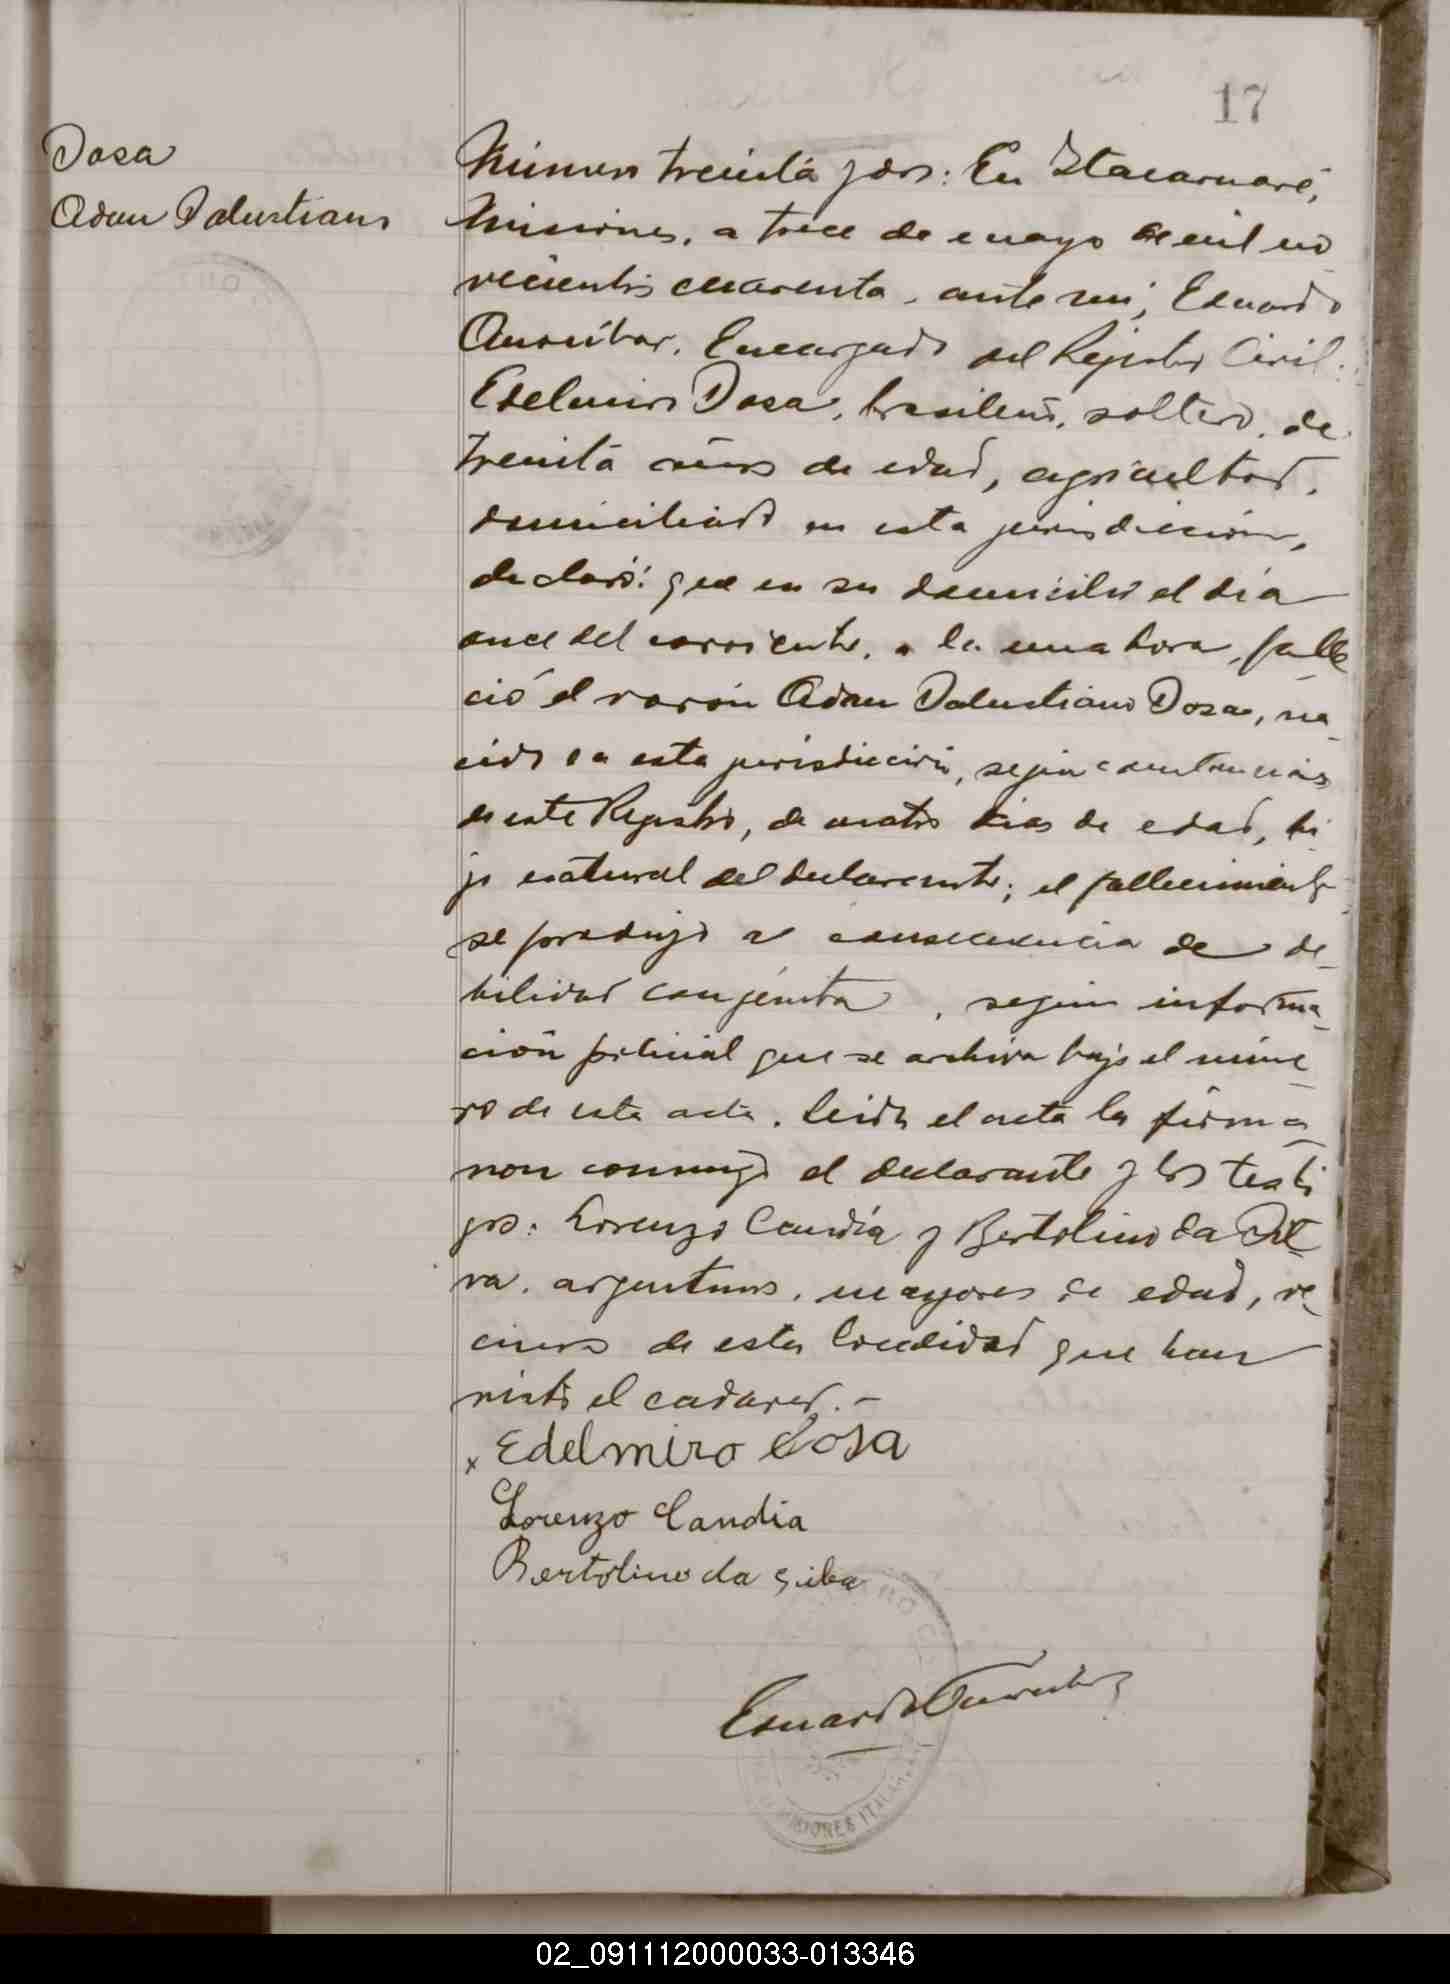 17
Dosa
Adan Salustiano
Número treinta y dos: En Itacaruaré,
Misiones, a trece de mayo de mil no
vecientos cuarenta, ante mi, Eduardo
Encargado del Registro Civil:
Edelmiro Dosa, brasileño, soltero, de
treinta años de edad, agricultor,
domiciliado en esta jurisdicción,
declaró: que en su domicilio el día
once del corriente, a la una hora, falle
ció el varón Adan Salustiano Dosa, na-
cido en esta jurisdicción, según constancias
de este Registro, de cuatro días de edad, hi-
jo natural del declarante; el fallecimiento
se produjo a consecuencia de de-
bilidad congénita, según informa-
ción policial que se archiva bajo el núme-
ro de esta acta. Leida el acta la firma-
ron conmigo el declarante y los testi
gos: Lorenzo Candia y Bertolino da Sil-
va, argentinos, mayores de edad, ve-
cinos de esta localidad que han
visto el cadaver.-
x Edelmiro Dosa
Lorenzo Candia
Bertolino da Silva
Eduardo
MISIONES
02_091112000033-013346